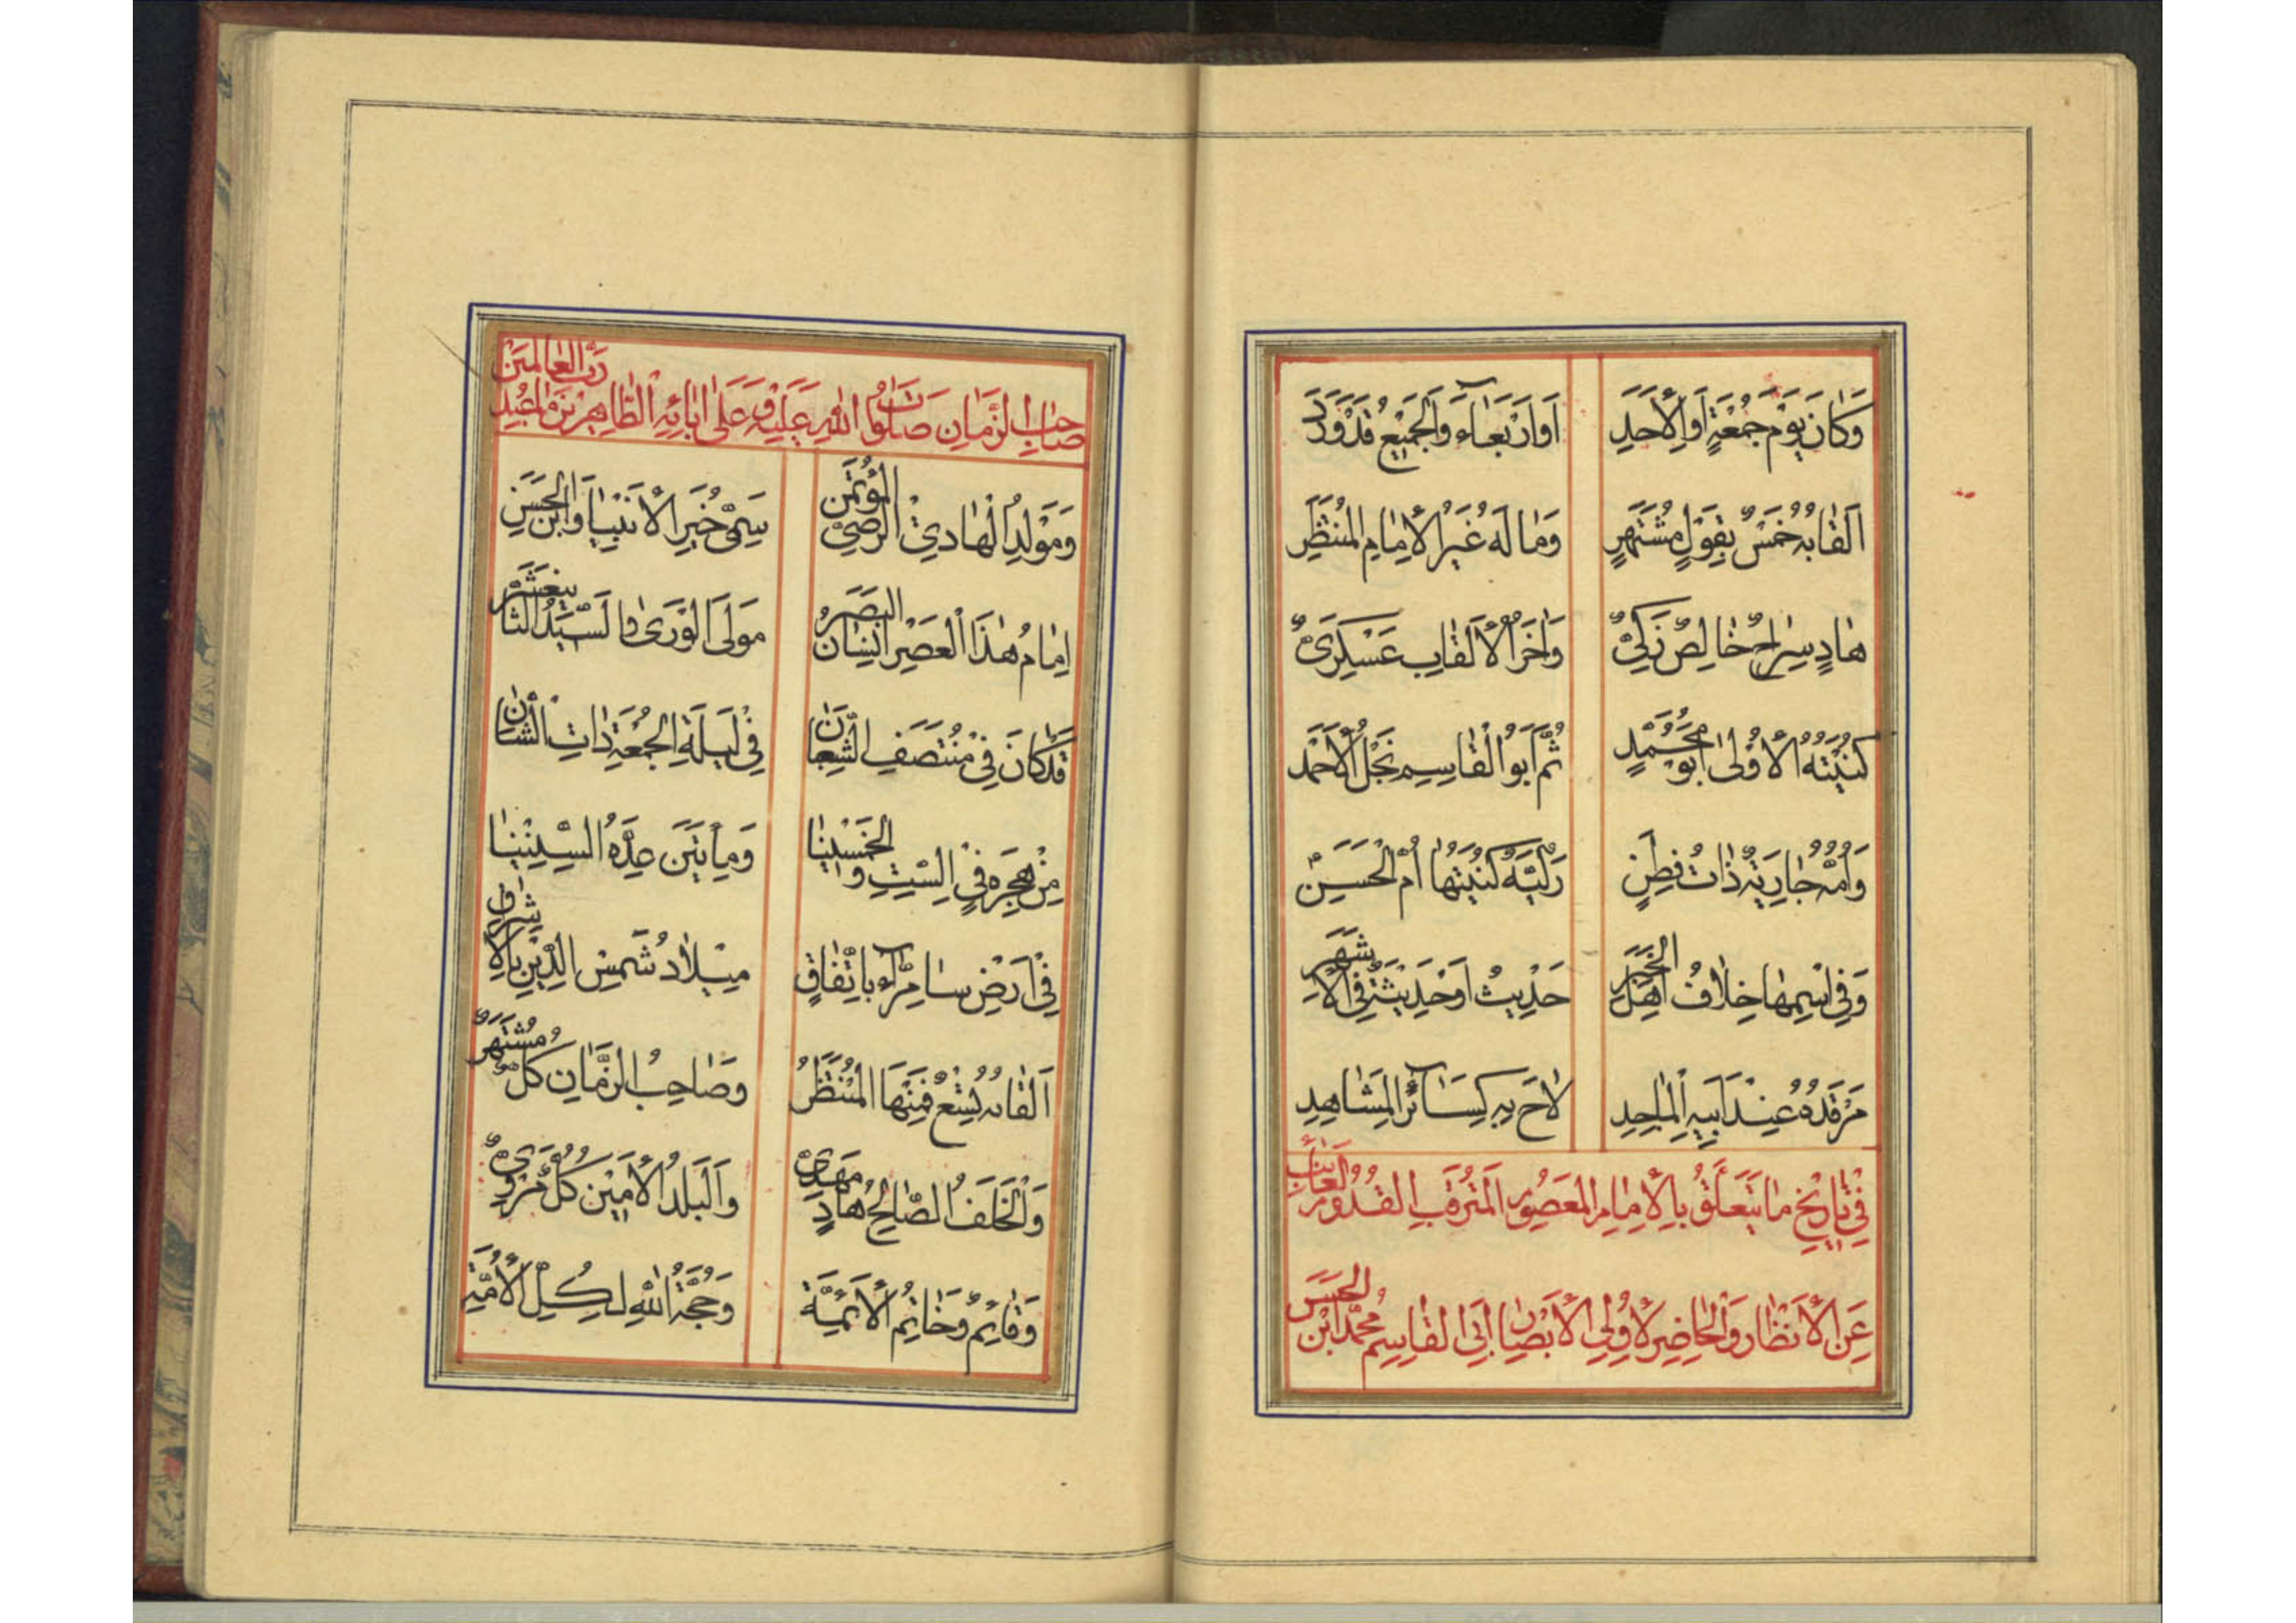 وَكَانَ يَوْمَ جُمْعَةٍ اَوِ الْاَحَدِ اَوْ اَرْبَعَاءَ وَالْجَمِيعُ قَدْ وَرَدَ
اَلْقَابُهُ خَمْسٌ بِقَوْلٍ مُشْتَهَرٍ وَمَا لَهُ غَيْرُ الْاِمَامِ الْمُنْتَظَرِ
هَادٍ سِرَاجٌ خَالِصٌ زَكِيٌّ وَاٰخَرُ الْاَلْقَابِ عَسْكَرِيٌّ
كُنْيَتُهُ الْاُوْلىٰ اَبُو مُحَمَّدٍ ثُمَّ اَبُو الْقَاسِمِ نَجْلُ الْاَحْمَدِ
وَاُمُّهُ جَارِيَةٌ ذَاتُ فِطَنٍ زَكِيَّةٌ كُنْيَتُهَا اُمُّ الْحَسَنِ
وَفِي اسْمِهَا خِلَافُ اَهْلِ الْخَبَرِ حَدِيْثُ اَوْ حَدِيْثَةٌ فِي الْاَشْهَرِ
مَرْقَدُهُ عِنْدَ اَبِيهِ الْمَاجِدِ لَاحَ بِهِ كَسَائِرِ الْمَشَاهِدِ
فِي تَارِيْخِ مَا يَتَعَلَّقُ بِالْاِمَامِ الْمَعْصُومِ الْمُتَرَقَّبِ الْقُدُومِ الْغَائِبِ
عَنِ الْاَنْظَارِ وَالْحَاضِرِ لِاُولِي الْاَبْصَارِ اَبِي الْقَاسِمِ مُحَمَّدِ ابْنِ الْحَسَنِ
صَاحِبِ الزَّمَانِ صَلَوَاتُ اللهِ عَلَيْهِ وَعَلىٰ اٰبَائِهِ الطَّاهِرِيْنَ رَبِّ الْعَالَمِيْنَ
وَمَوْلِدُ الْهَادِيْ الرَّضِيِّ الْمُؤْتَمَنِ سَمِيِّ خَيْرِ الْاَنْبِيَا وَابْنِ الْحَسَنِ
اِمَامُ هٰذَا الْعَصْرِ اِنْسَانُ الْبَصَرِ مَوْلَى الْوَرىٰ وَالسَّيِّدُ الثَّانِيْ عَشَرَ
قَدْ كَانَ فِيْ مُنْتَصَفِ الشَّعْبَانِ فِيْ لَيْلَةِ الْجُمْعَةِ ذَاتِ الشَّانِ
مِنْ هِجْرَةٍ فِي السِّتِّ وَالْخَمْسِيْنَا وَمِأَتَيْنِ عِدَّةُ السِّنِيْنَا
فِيْ اَرْضِ سَامِرَّاءَ بِاتِّفَاقٍ مِيْلَادُ شَمْسِ الدِّيْنِ بِالْاِشْرَاقِ
اَلْقَابُهُ تِسْعٌ فَمِنْهَا الْمُنْتَظَرُ وَصَاحِبُ الزَّمَانِ كُلٌّ مُشْتَهَرٌ
وَالْخَلَفُ الصَّالِحُ هَادٍ مَهْدِيٌّ وَالْبَلَدُ الْاَمِيْنُ كُلٌّ مَرْوِيٌّ
وَقَائِمٌ وَخَاتِمُ الْاَئِمَّةِ وَحُجَّةُ اللهِ لِكُلِّ الْاُمَّةِ